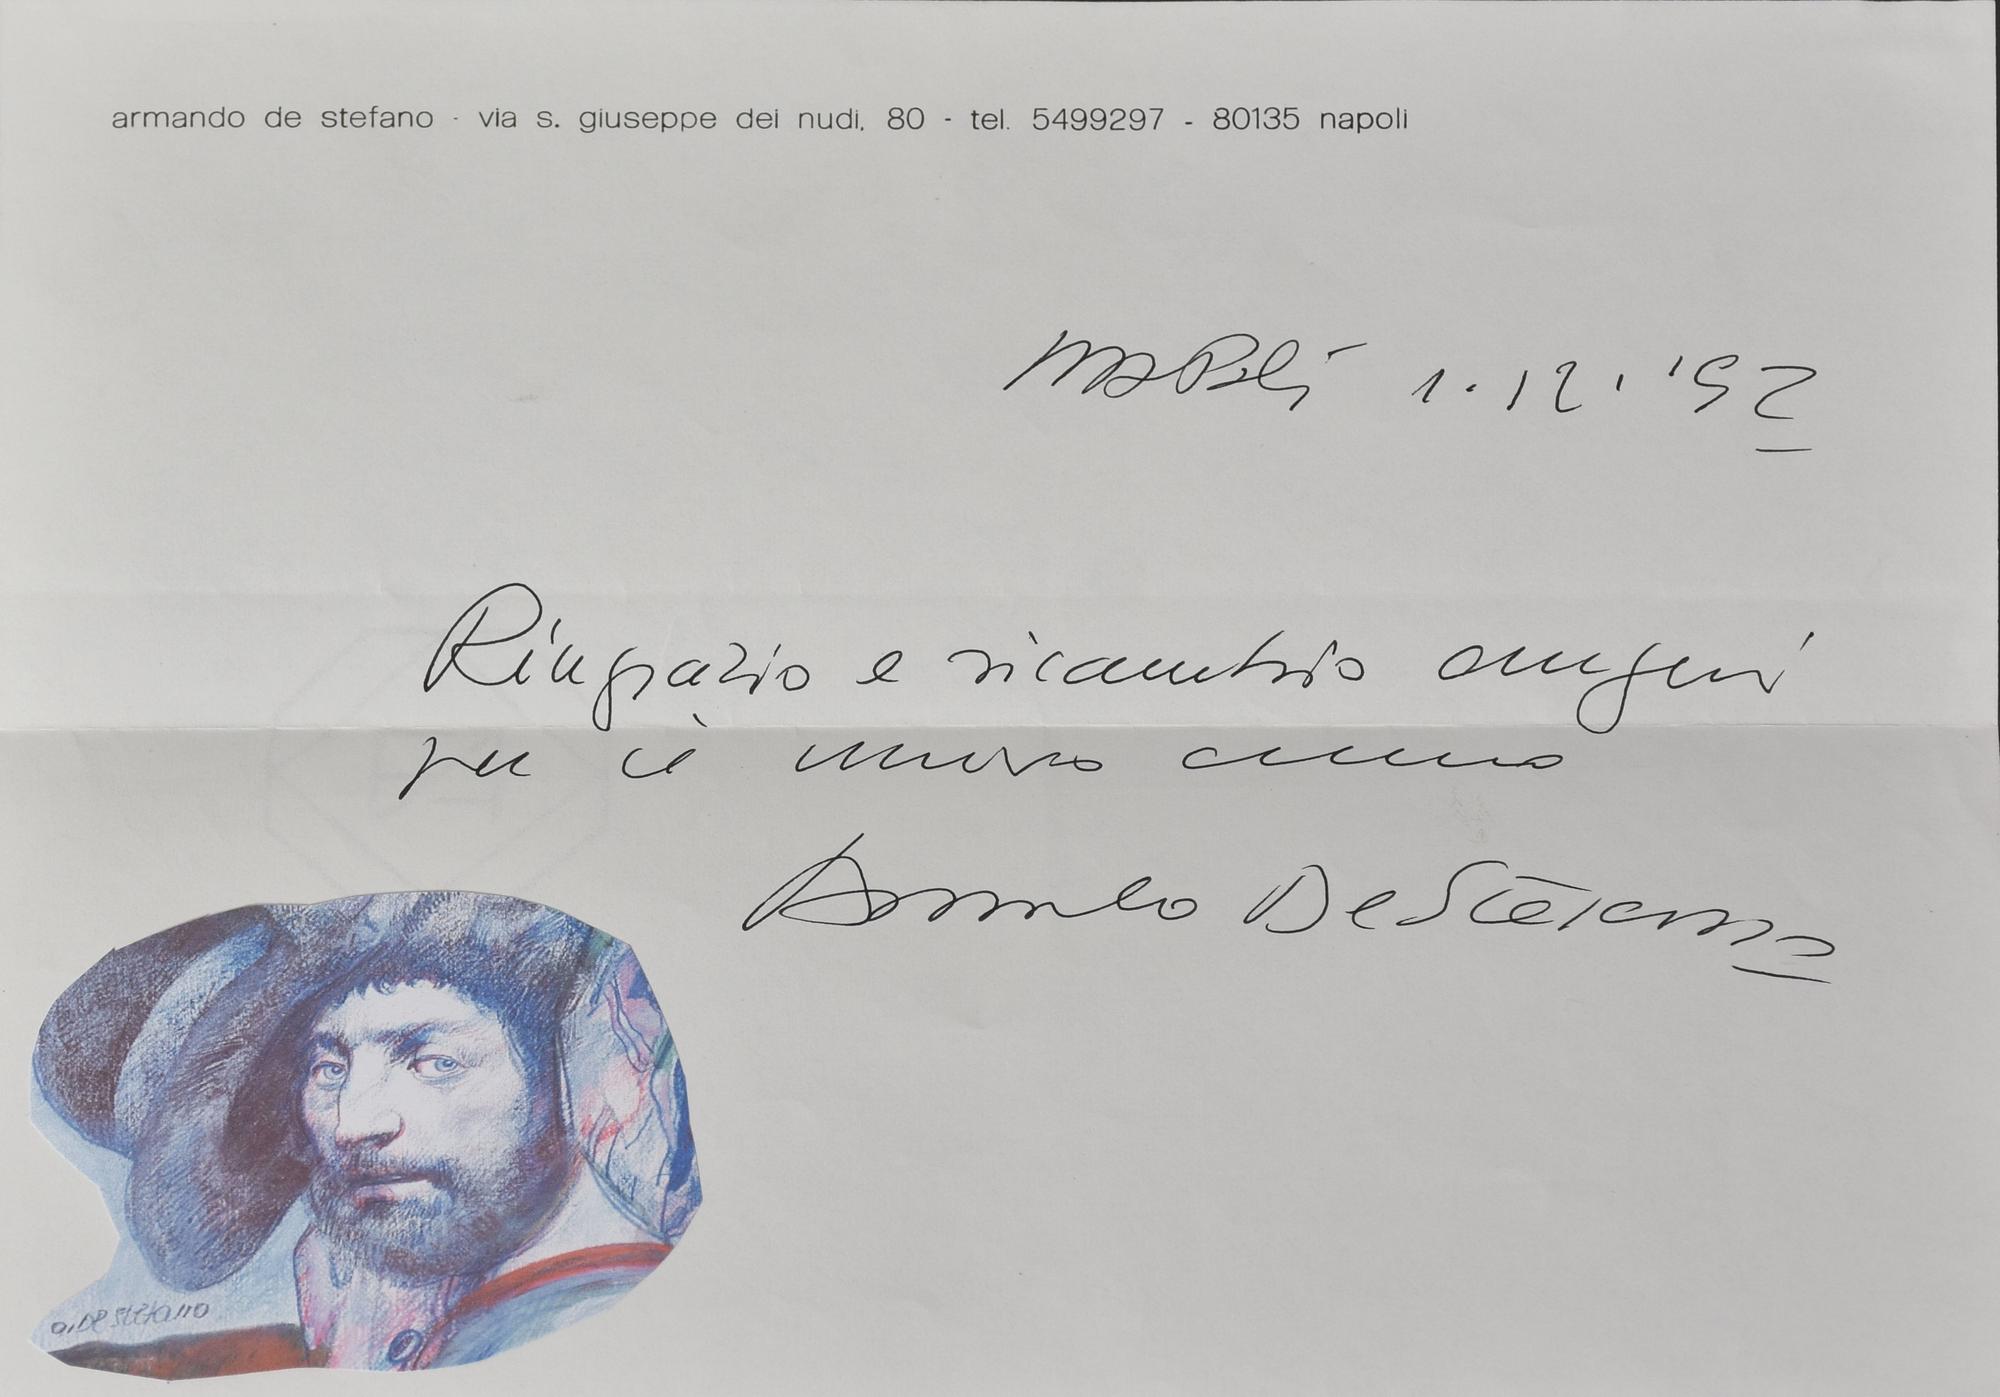 armando de stefano - via s. giuseppe dei nudi, 80 - tel. 5499297 - 80135 napoli
Napoli 1.12.'92
Ringrazio e ricambio auguri
per il nuovo anno
Armando De Stefano
a. DE STEFANO